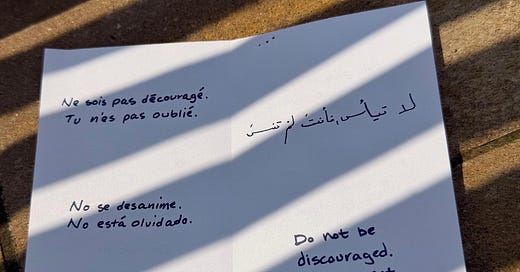 Ne sois pas découragé.
Tu n'es pas oublié.
لا تيأس، فأنت لم تنسَ
No se desanime.
No está olvidado.
Do not be
discouraged.